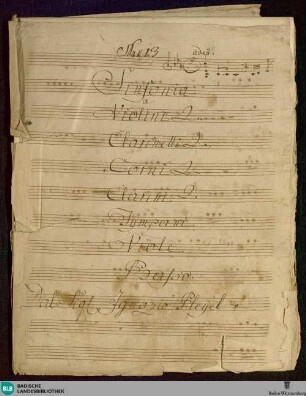 No. 13 adag:
Sinfonia
a
Violini 2.
Clarinetti 2.
Corni 2
Clarini 2.
Tympani
Viole
Basso
Del Sigl Ignazio Pleyel
BLB BADISCHE
LANDESBIBLIOTHEK
Baden-Württemberg